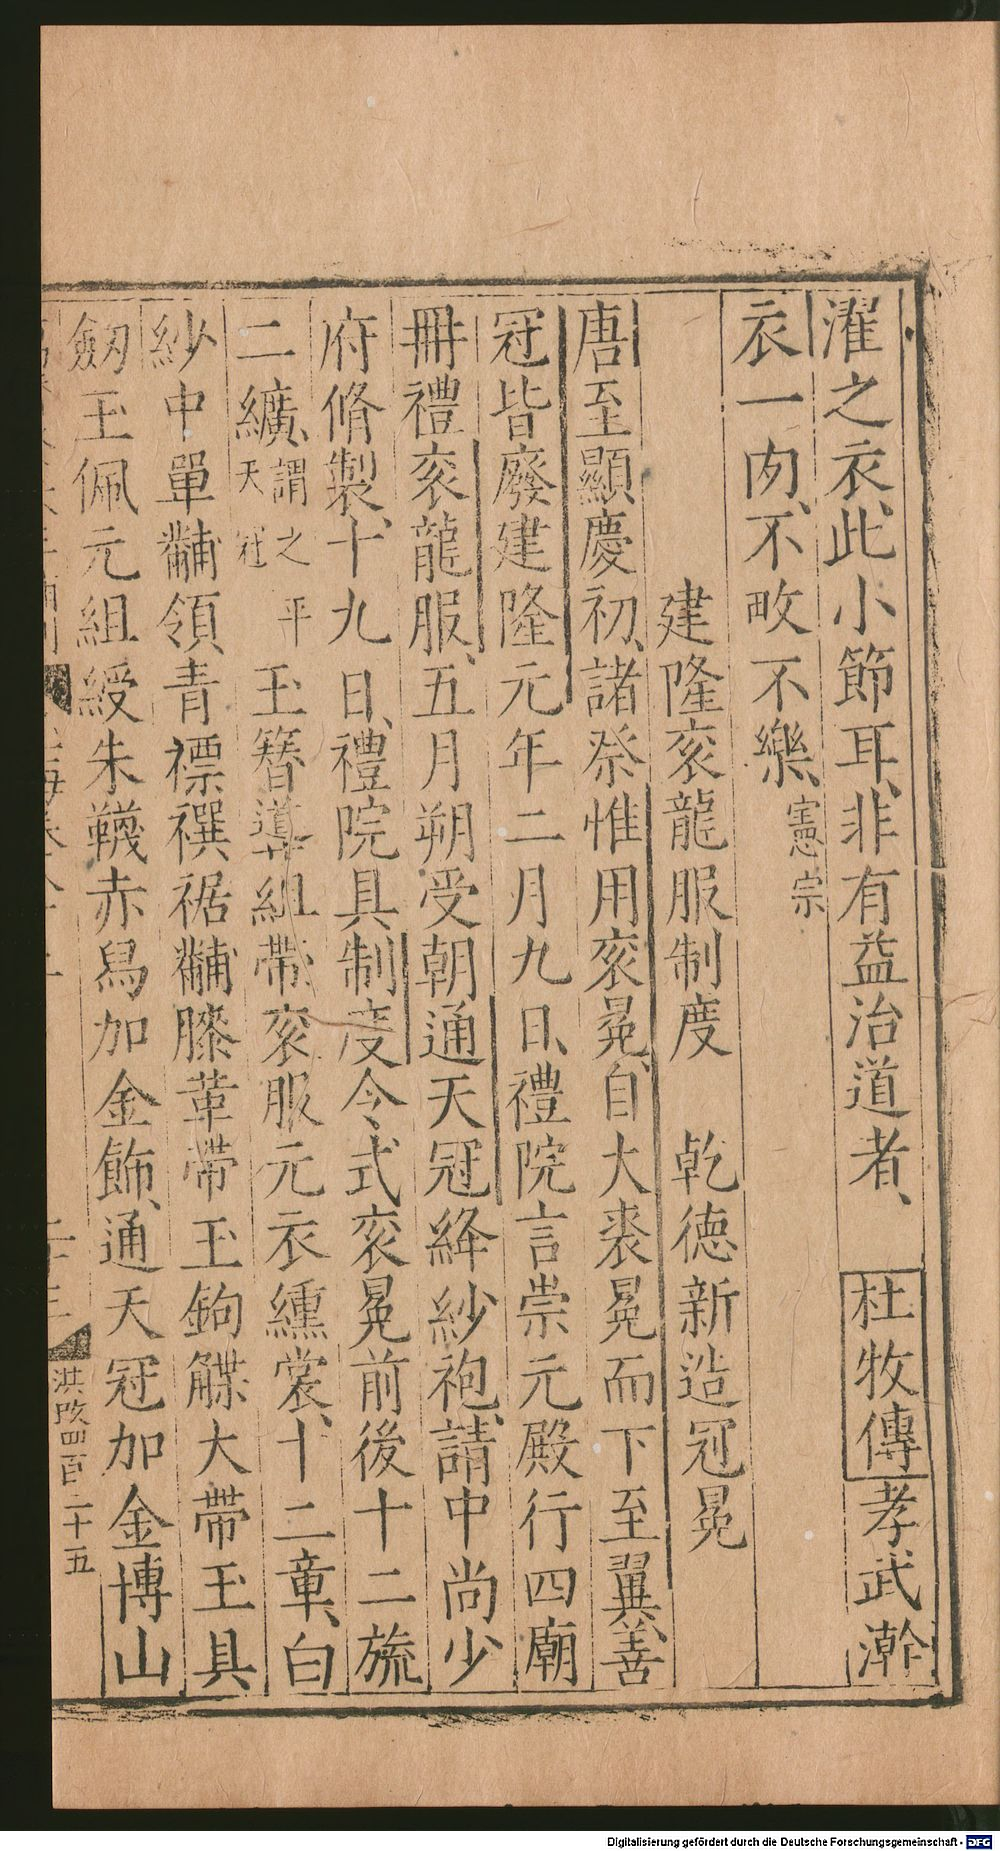 濯之衣、此小節耳、非有益治道者、杜牧傳孝武澣
衣一肉、不畋不樂、憲宗
建隆衮龍服制度　乾德新造冠冕
唐至顯慶初、諸祭惟用衮冕、自大裘冕而下至翼善
冠皆廢建隆元年二月九日、禮院言崇元殿行四廟
冊禮衮龍服、五月朔受朝通天冠絳紗袍、請中尚少
府脩製、十九日、禮院具制度令式衮冕前後十二旒
二纊、謂之平天冠玉簪導組帶衮服元衣纁裳、十二章、白
紗中單黼領青褾襈裾黼膝革帶玉鉤䚢大帶玉具
劒玉佩元組綬朱韈赤舄加金飾、通天冠加金博山
二十三
洪改四百二十五
Digitalisierung gefördert durch die Deutsche Forschungsgemeinschaft - DFG